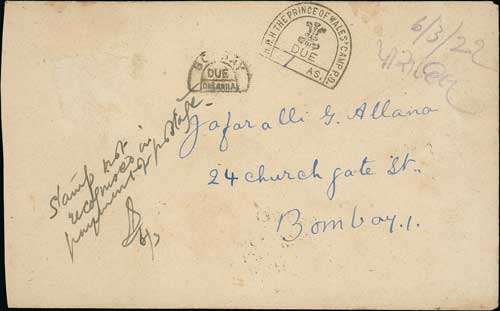 H.R.H THE PRINCE OF WALES' CAMP P.O.
DUE
AS.
6/3/22
BOMBAY
DUE
Jafaralli G. Allana
24 church gate St.
Bombay. 1.
Stamp not
recognised in
payment of postage
6/3